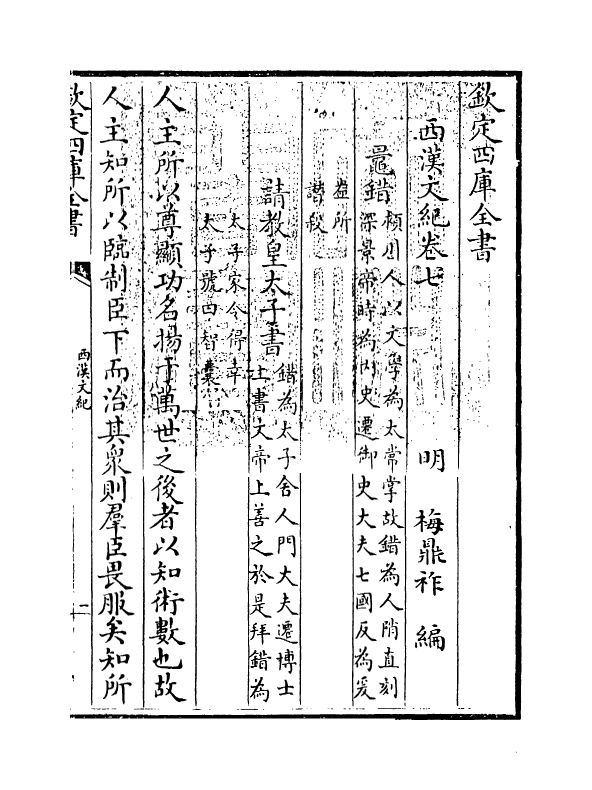 欽定四庫全書
西漢文紀卷七
明 梅鼎祚 編
鼂錯
潁川人以文學為太常掌故錯為人陗直刻
深景帝時為内史遷御史大夫七國反為爰
盎所
譖殺
請教皇太子書
錯為太子舍人門大夫遷博士
上書文帝上善之於是拜錯為
太子家令得幸
太子號曰智囊
人主所以尊顯功名揚于萬世之後者以知術數也故
人主知所以臨制臣下而治其衆則羣臣畏服矣知所
欽定四庫全書
西漢文紀
一